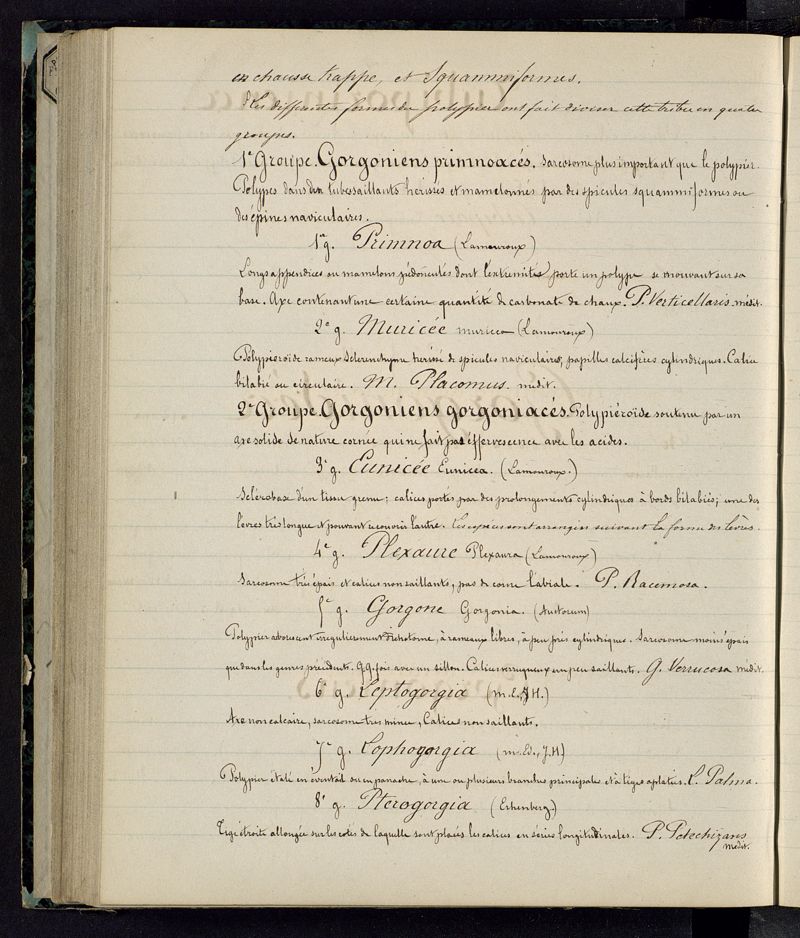 en chausse trappe, et Squammiformes.
Les differentes formes du polypier ont fait diviser cette tribu en quatre
groupes.
1er Groupe. Gorgoniens primnoacés. Sarcosome plus important que le polypier.
Polypes dans des tubes saillants hérissés et mamelonnés par des spicules squammiformes ou
des épines naviculaires.
1er g. Primnoa (Lamouroux)
Longs appendices ou mamelons pédonculés dont l'extremité porte un polype se mouvant sur sa
base. Axe contenant une certaine quantité de carbonate de chaux. P. Verticellaris. médit.
2e g. Muricée muricea (Lamouroux)
Polypieroïde rameux Sclerenchyme hérissé de spicules naviculaires, papilles calcifères cylindriques. Calice
bilabié ou circulaire. M. Placomus. médit.
2e Groupe. Gorgoniens gorgoniacés. Polypiéroïde soutenu par un
axe solide de nature cornée qui ne fait pas effervescence avec les acides.
3e g. Eunicée Eunicea. (Lamouroux.)
Sclérobase d'un tissu grenu; calices portés par des prolongements cylindriques à bords bilabiés; une des
lèvres très longue et pouvant recouvrir l'autre. Les espèces sont arrangées suivant la forme des lèvres.
4e g. Plexaure Plexaura (Lamouroux)
Sarcosome très épais et calices non saillants, pas de corne labiale. P. Racemosa.
5e g. Gorgone Gorgonia. (Auctorum)
Polypier arborescent irregulierement dichotome, à rameaux libres, à peu près cylindriques. Sarcosome moins épais
que dans les genres precedents. qq. fois avec un sillon. Calices verruqueux un peu saillants. G. Verrucosa médit.
6e g. Leptogorgia (m. E., J H.)
Axe non calcaire, sarcosome tres mince, Calices non saillants.
7e g. Lophogorgia (m. Ed., J. H)
Polypier étalé en éventail ou en panache, à une ou plusieurs branches principales et à tiges aplaties. L. Palma.
8e g. Pterogorgia (Erhenberg.)
Tige étroite allongée sur les cotés de laquelle sont placés les calices en séries longitudinales. P. Petechizans
médit.